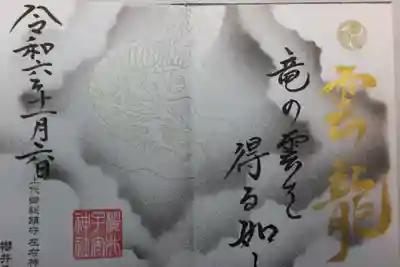 雲龍
竜の雲を
得る如し
令和六年十一月六日
子宮
神社
櫻井